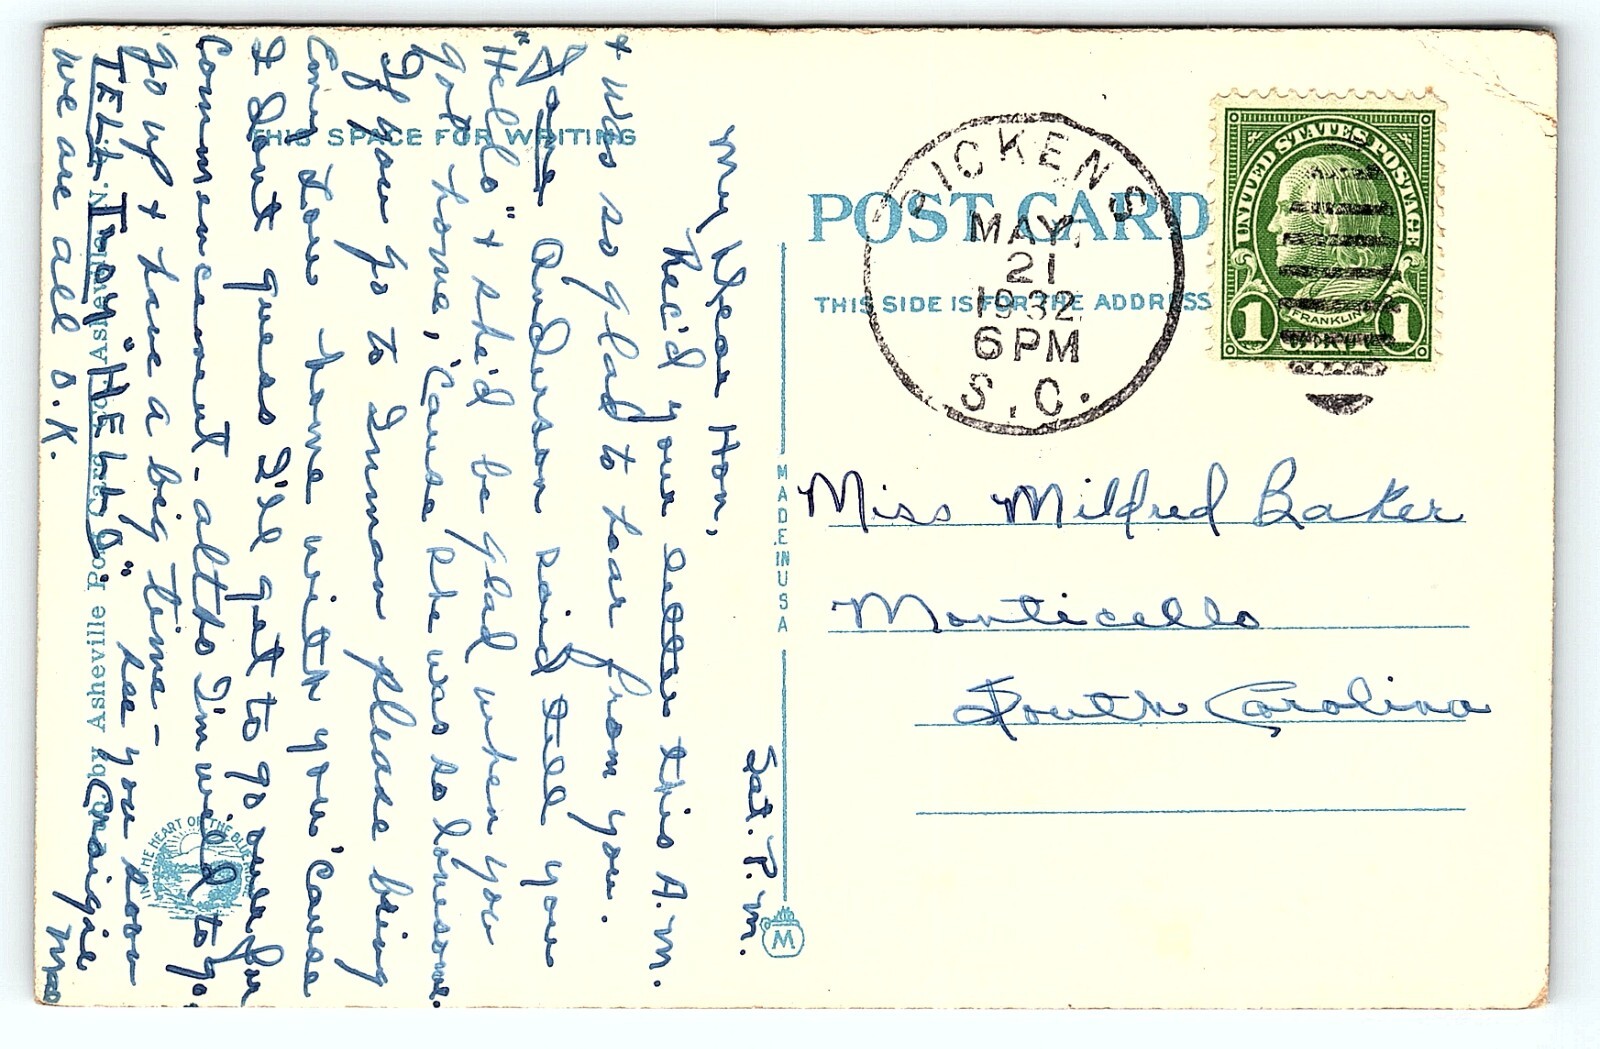 THIS SPACE FOR WRITING
Sat. P.M.
My Dear Hon,
Rec'd your letter this A.M.
& was so glad to hear from you.
Jane Anderson said tell you
"Hello" & she'd be glad when you
got home, 'Cause she was so lonesome.
If you go to Inman please bring
Emmy Lou home with you 'Cause
I don't guess I'll get to go over for
Commencement - altho I'm wild to go.
Go up & have a big time -
TELL Troy "HELLO" see you soon
we are all O.K.
Craigie
by Asheville Post Card
IN THE HEART OF THE BLUE
MADE IN USA
M
POST CARD
THIS SIDE IS FOR THE ADDRESS
PICKENS
MAY
21
1932
6 PM
S.C.
UNITED STATES POSTAGE
FRANKLIN
1 1
Miss Mildred Baker
Monticello
South Carolina